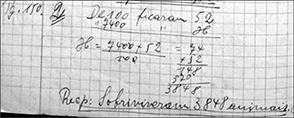 Pg. 150. 2) De 100 ficaram 52
" 7400 " H
H = 7400 x 52 = 74
100 x 52
148
370
3848
Resp: Sobriviveram 3.848 animais.